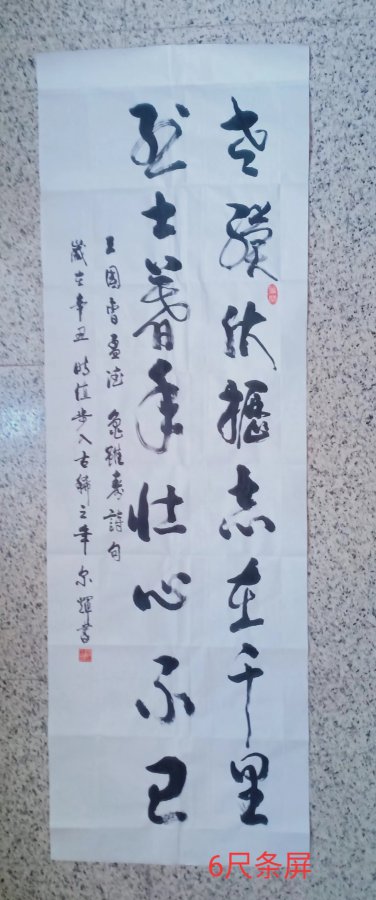 老骥伏櫪志在千里
烈士暮年壮心不已
三国曹孟德龟雖寿詩句
歲在辛丑時值步入古稀之年尔輝書
6尺条屏